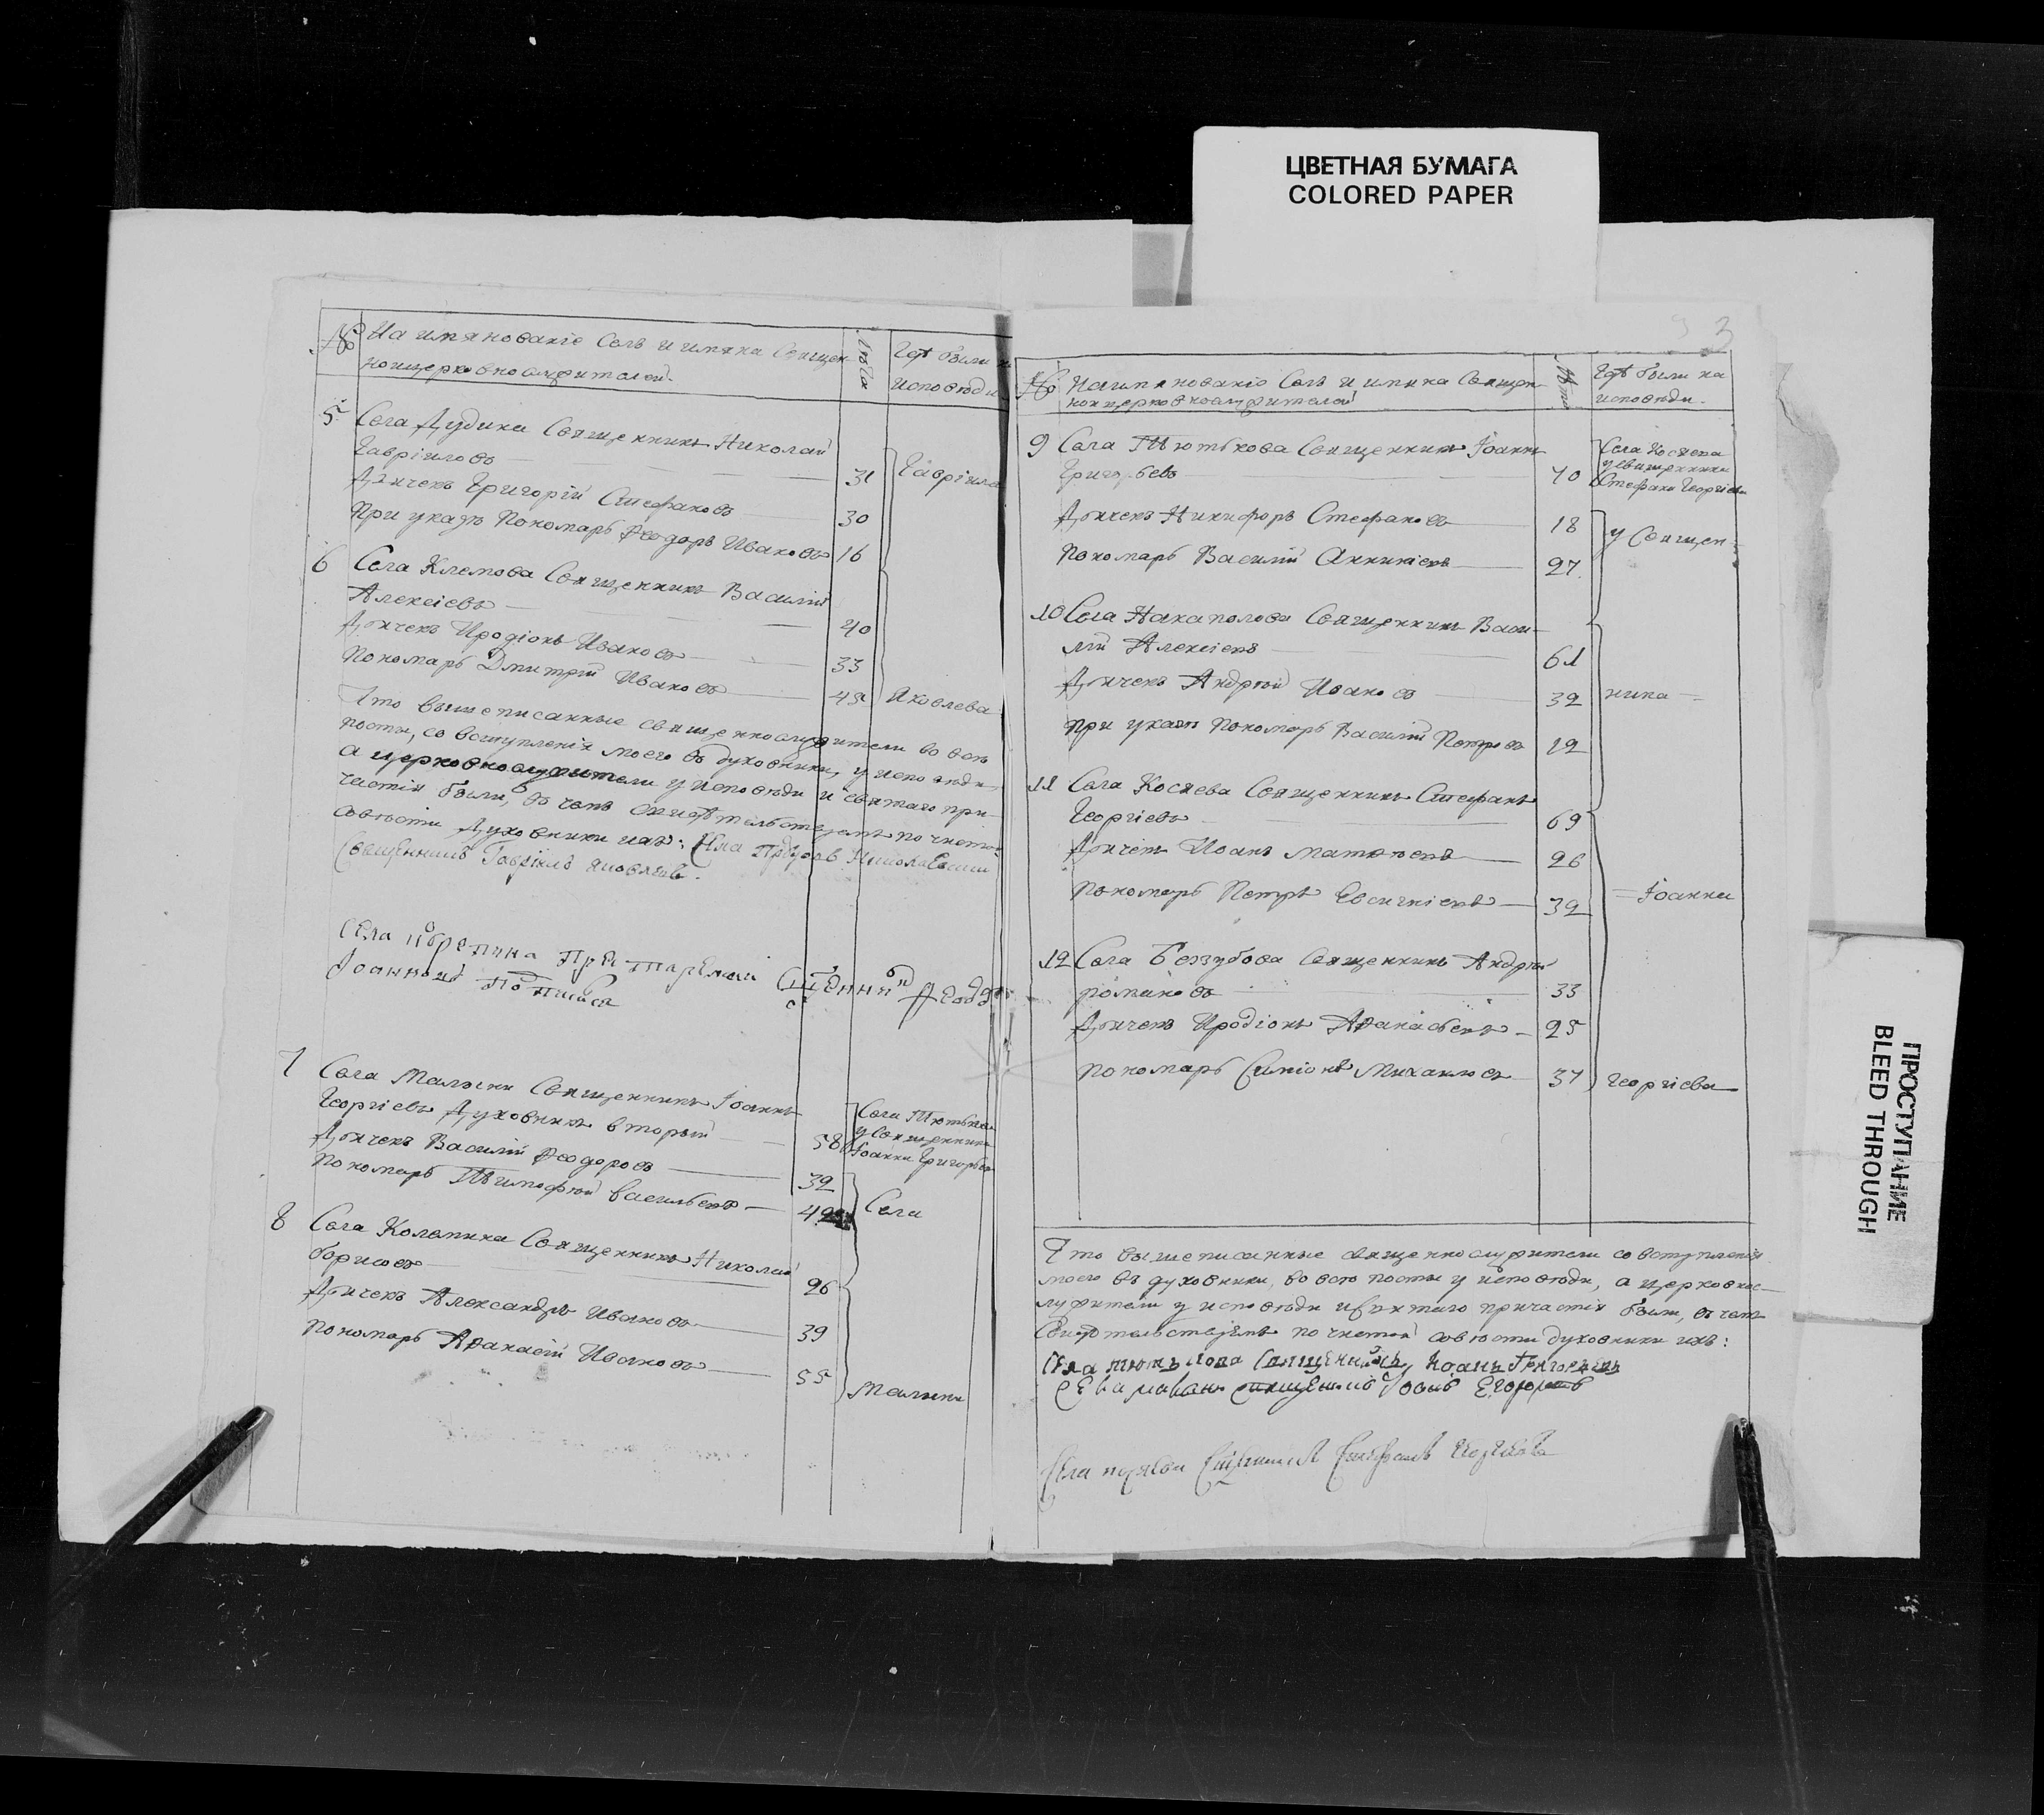 ЦВЕТНАЯ БУМАГА
COLORED PAPER
№
Наимянованіе Селъ и имяна Священ-
ноцерковнослужителей.
Лѣта
Гдѣ были на
исповѣди
5
Села Дудина Священникъ Николай
Гавріиловъ
31
Гавріила
Дьячекъ Григорій Стефановъ
30
При указѣ Пономарь Ѳеодоръ Ивановъ
16
6
Села Клемова Священникъ Василій
Алексіевъ
40
Дьячекъ Иродіонъ Ивановъ
33
Пономарь Дмитрій Ивановъ
45
Яковлева
Что вышеписанные священнослужители во всѣ
посты, со вступленія моего въ духовники, у исповѣди,
а церковнослужители у исповѣди и святаго при-
частія были, въ чемъ свидѣтельствуемъ по чистой
совѣсти Духовники ихъ:
Священникъ Гавріилъ Яковлевъ.
7
Села Малина Священникъ Іоаннъ
Георгіевъ Духовникъ вторый
58
Села Тютькова
у священника
Іоанна Григорьева
Дьячекъ Василій Ѳеодоровъ
32
Пономарь Тимофей Васильевъ
42
Села
8
Села Коломина Священникъ Николай
Борисовъ
26
Дьячекъ Александръ Ивановъ
39
Пономарь Аѳанасій Ивановъ
55
Малина
3
№
Наимянованіе Селъ и имяна Священ-
ноцерковнослужителей
Лѣта
Гдѣ были на
исповѣди.
9
Села Тютькова Священникъ Іоаннъ
Григорьевъ
70
Села Косяева
у священника
Стефана Георгіева
Дьячекъ Никифоръ Стефановъ
18
у Священ-
Пономарь Василій Аникіевъ
27.
10
Села Накаполова Священникъ Васи-
лій Алексіевъ
61
Дьячекъ Андрей Ивановъ
32
ника
При указѣ Пономарь Василій Петровъ
12
11
Села Косяева Священникъ Стефанъ
Георгіевъ
69
Дьячекъ Иванъ Матвѣевъ
26
Пономарь Петръ Евсигніевъ
32
Іоанна
12
Села Беззубова Священникъ Андрей
Романовъ
33
Дьячекъ Иродіонъ Аѳанасьевъ
25
Пономарь Симіонъ Михаиловъ
37
Георгіева
Что вышеписанные священнослужители со вступленія
моего въ духовники, во всѣ посты у исповѣди, а церковно-
служители у исповѣди и святаго причастія были, въ чемъ
Свидѣтельствуемъ по чистой совѣсти духовники ихъ:
Села Тютькова Священникъ Иоанъ Григорьевъ
Священникъ Егоровъ
ПРОСТУПАНИЕ
BLEED THROUGH